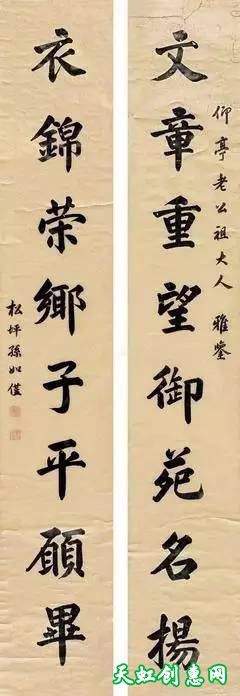 仰亭老公祖大人 雅鑒
文章重望御苑名揚
衣錦荣鄉子平願畢
松坪孫如僅
天虹创惠网